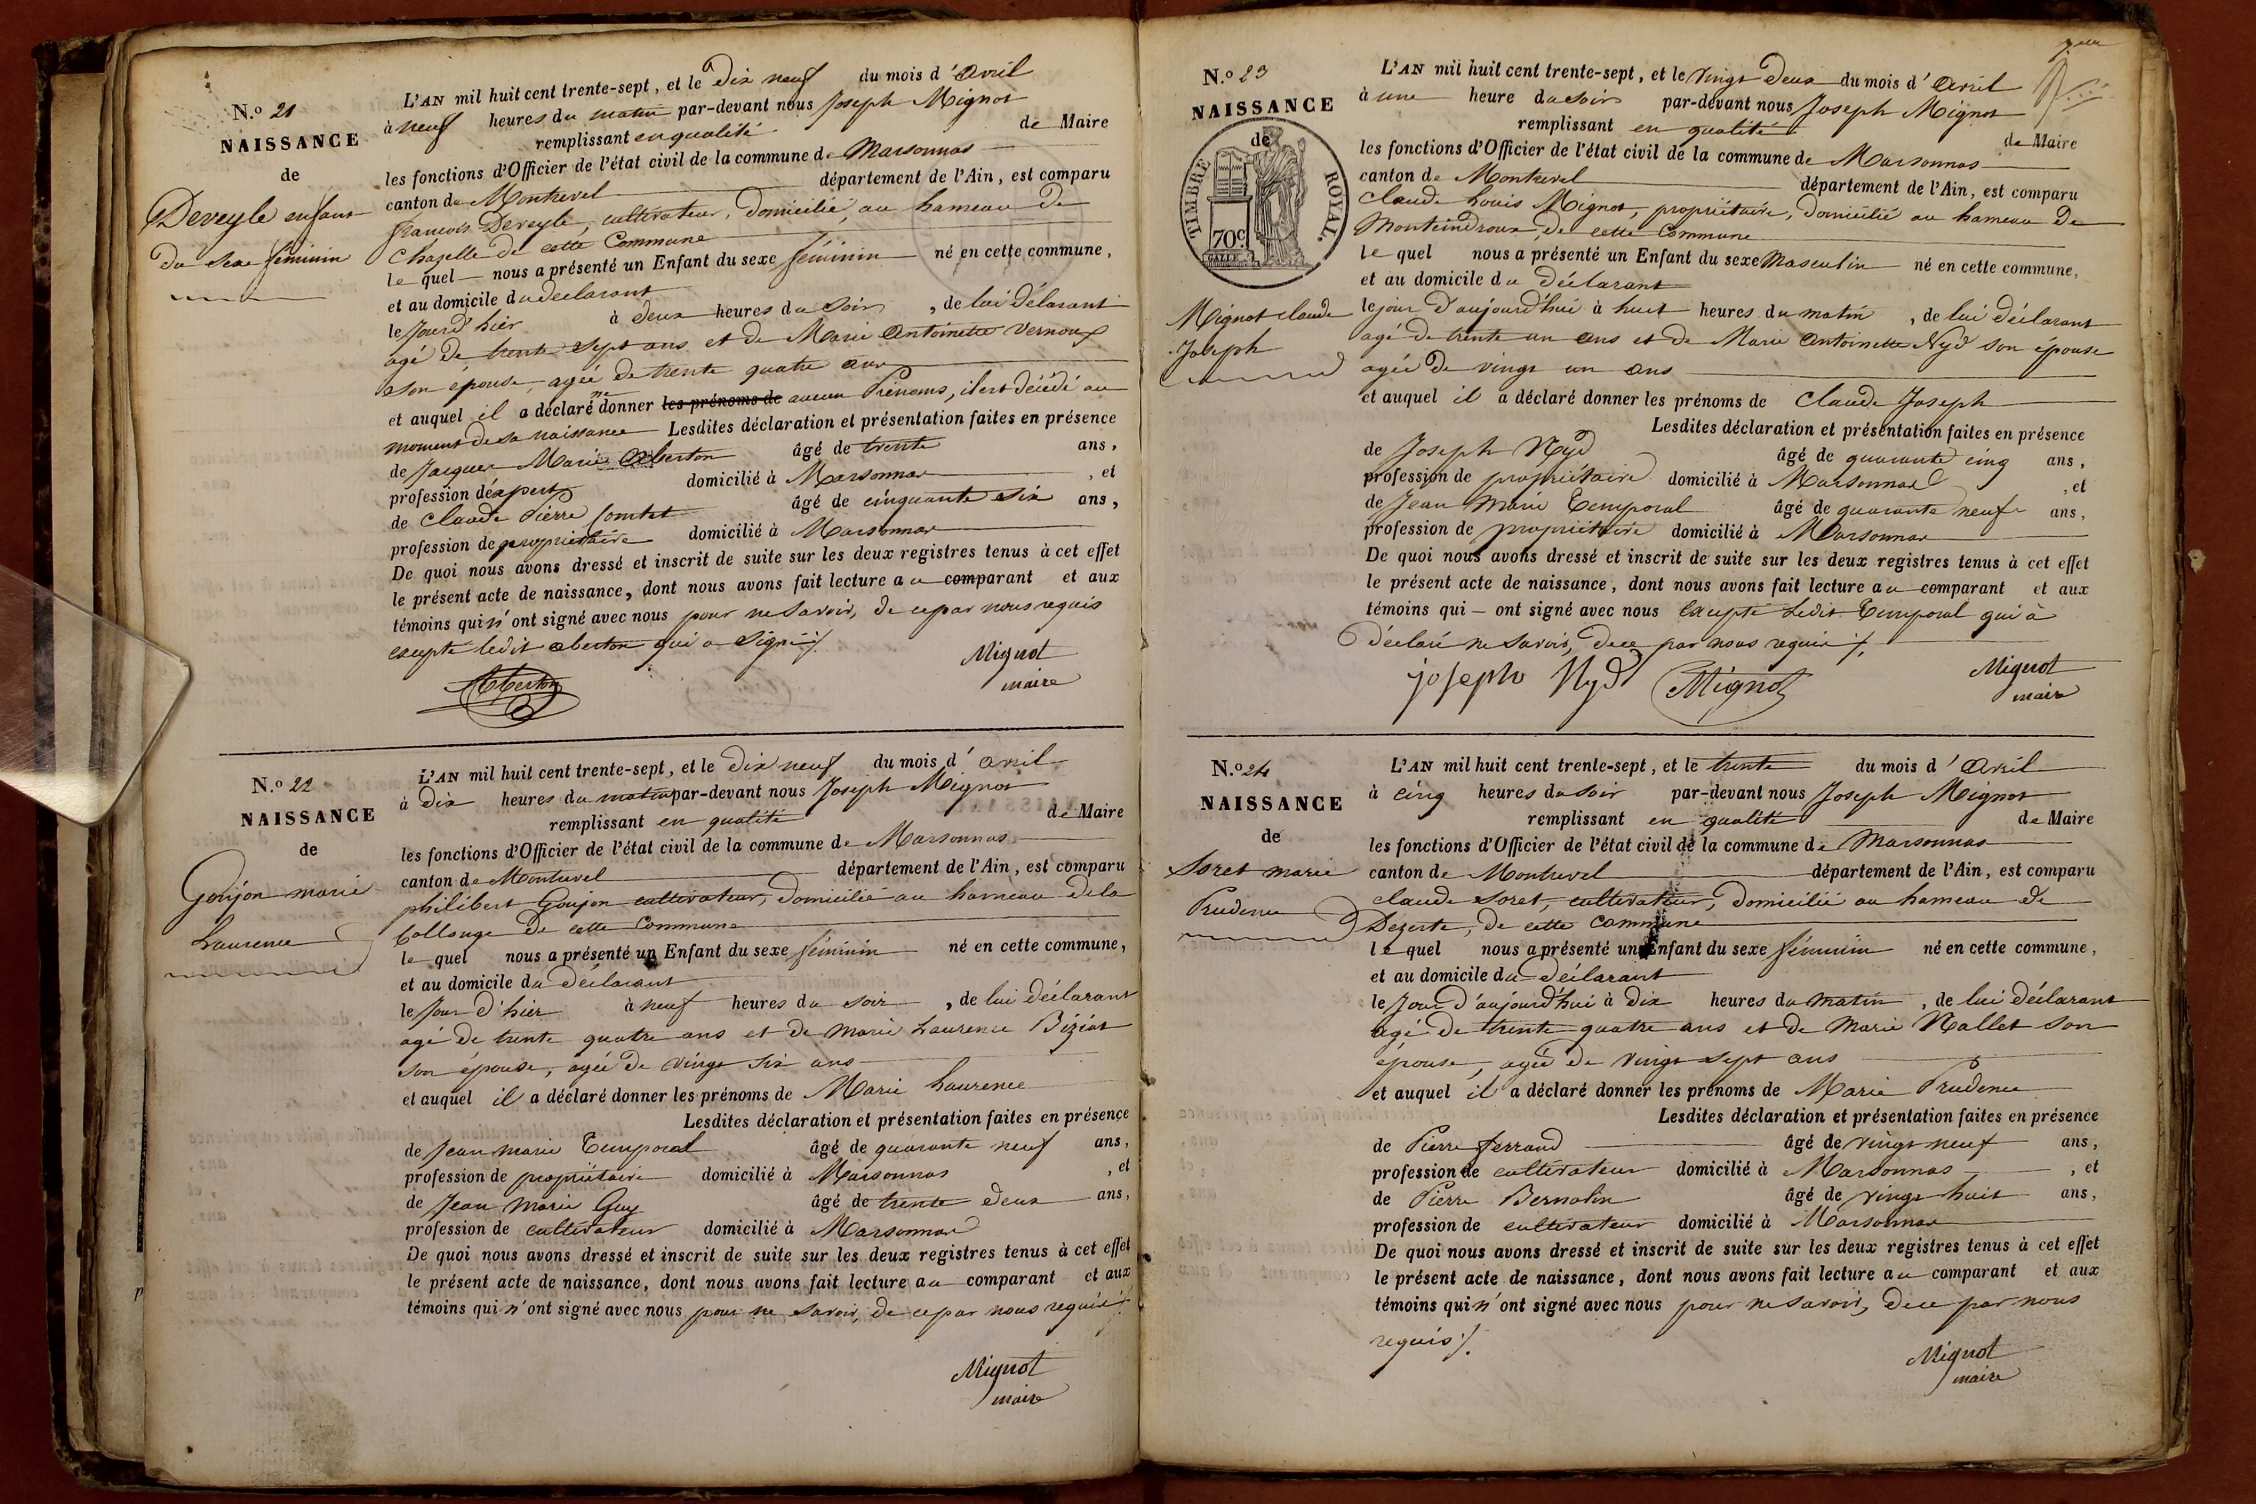 N.o 21
NAISSANCE
de
Deveyle enfant
du sexe féminin
L'AN mil huit cent trente-sept, et le Dix neuf du mois d'avril
à neuf heures du matin par-devant nous Joseph Mignot
remplissant en qualité de Maire
les fonctions d'Officier de l'état civil de la commune de Marsonnas
canton de Montrevel département de l'Ain, est comparu
francois Deveyle, cultivateur, domicilié, au hameau de
Chazelle de cette Commune
le quel nous a présenté un Enfant du sexe féminin né en cette commune,
et au domicile du déclarant
le Jourd'hier à deux heures du soir, de lui délarant
agé de trente sept ans et de Marie antoinette vernoux
son épouse, agée de trente quatre ans
et auquel il a déclaré ne donner les prénoms de aucun Prénoms, il est décédé au
moment de sa naissance Lesdites déclaration et présentation faites en présence
de Jacques Marie Aberton âgé de trente ans,
profession d'expert domicilié à Marsonnas, et
de Claude Pierre Comtet âgé de cinquante six ans,
profession de propriétaire domicilié à Marsonnas
De quoi nous avons dressé et inscrit de suite sur les deux registres tenus à cet effet
le présent acte de naissance, dont nous avons fait lecture au comparant et aux
témoins qui n'ont signé avec nous pour ne savoir, de ce par nous requis
excepte ledit aberton qui a signé ./.
Aberton
Mignot
maire
N.o 22
NAISSANCE
de
Goujon marie
Laurence
L'AN mil huit cent trente-sept, et le Dix neuf du mois d'avril
à Dix heures du matin par-devant nous Joseph Mignot
remplissant en qualité de Maire
les fonctions d'Officier de l'état civil de la commune de Marsonnas
canton de Montrevel département de l'Ain, est comparu
philibert Goujon cultivateur, domicilié au hameau de la
Collonge de cette Commune
le quel nous a présenté un Enfant du sexe féminin né en cette commune,
et au domicile du déclarant
le Jour d'hier à neuf heures du soir, de lui déclarant
agé de trente quatre ans et de marie Laurence Béziat
son épouse, agée de vingt six ans
et auquel il a déclaré donner les prénoms de Marie Laurence
Lesdites déclaration et présentation faites en présence
de Jean marie Temporal âgé de quarante neuf ans,
profession de propriétaire domicilié à Marsonnas, et
de Jean Marie Guy âgé de trente deux ans,
profession de cultivateur domicilié à Marsonnas
De quoi nous avons dressé et inscrit de suite sur les deux registres tenus à cet effet
le présent acte de naissance, dont nous avons fait lecture au comparant et aux
témoins qui n'ont signé avec nous pour ne savoir, de ce par nous requis ./.
Mignot
maire
N.o 23
NAISSANCE
de
TIMBRE ROYAL.
70c.
Mignot claude
Joseph
L'AN mil huit cent trente-sept, et le vingt deux du mois d'avril
à une heure du soir par-devant nous Joseph Mignot
remplissant en qualité de Maire
les fonctions d'Officier de l'état civil de la commune de Marsonnas
canton de Montrevel département de l'Ain, est comparu
Claude Louis Mignot, propriétaire, domicilié au hameau de
Monteindroux, de cette Commune
le quel nous a présenté un Enfant du sexe Masculin né en cette commune,
et au domicile du déclarant
le jour d'aujourd'hui à huit heures du matin, de lui déclarant
agé de trente un ans et de Marie Antoinette Nyd son épouse
agée de vingt un ans
et auquel il a déclaré donner les prénoms de Claude Joseph
Lesdites déclaration et présentation faites en présence
de Joseph Nyd âgé de quarante cinq ans,
profession de propriétaire domicilié à Marsonnas, et
de Jean Marie Temporal âgé de quarante neuf ans,
profession de propriétaire domicilié à Marsonnas
De quoi nous avons dressé et inscrit de suite sur les deux registres tenus à cet effet
le présent acte de naissance, dont nous avons fait lecture au comparant et aux
témoins qui ont signé avec nous Excepte ledit Temporal qui à
déclaré ne savoir, de ce par nous requis ./.
joseph Nyd Mignot
Mignot
maire
N.o 24
NAISSANCE
de
Soret marie
Prudence
L'AN mil huit cent trente-sept, et le trente du mois d'avril
à cinq heures du soir par-devant nous Joseph Mignot
remplissant en qualité de Maire
les fonctions d'Officier de l'état civil de la commune de Marsonnas
canton de Montrevel département de l'Ain, est comparu
claude soret, cultivateur, domicilié au hameau de
Dezerte, de cette Commune
le quel nous a présenté un Enfant du sexe féminin né en cette commune,
et au domicile du déclarant
le Jour d'aujourd'hui à dix heures du matin, de lui déclarant
agé de trente quatre ans et de Marie Nallet son
épouse, agée de vingt sept ans
et auquel il a déclaré donner les prénoms de Marie Prudence
Lesdites déclaration et présentation faites en présence
de Pierre ferrand âgé de vingt neuf ans,
profession de cultivateur domicilié à Marsonnas, et
de Pierre Bernalin âgé de vingt huit ans,
profession de cultivateur domicilié à Marsonnas
De quoi nous avons dressé et inscrit de suite sur les deux registres tenus à cet effet
le présent acte de naissance, dont nous avons fait lecture au comparant et aux
témoins qui n'ont signé avec nous pour ne savoir, de ce par nous
requis ./.
Mignot
maire